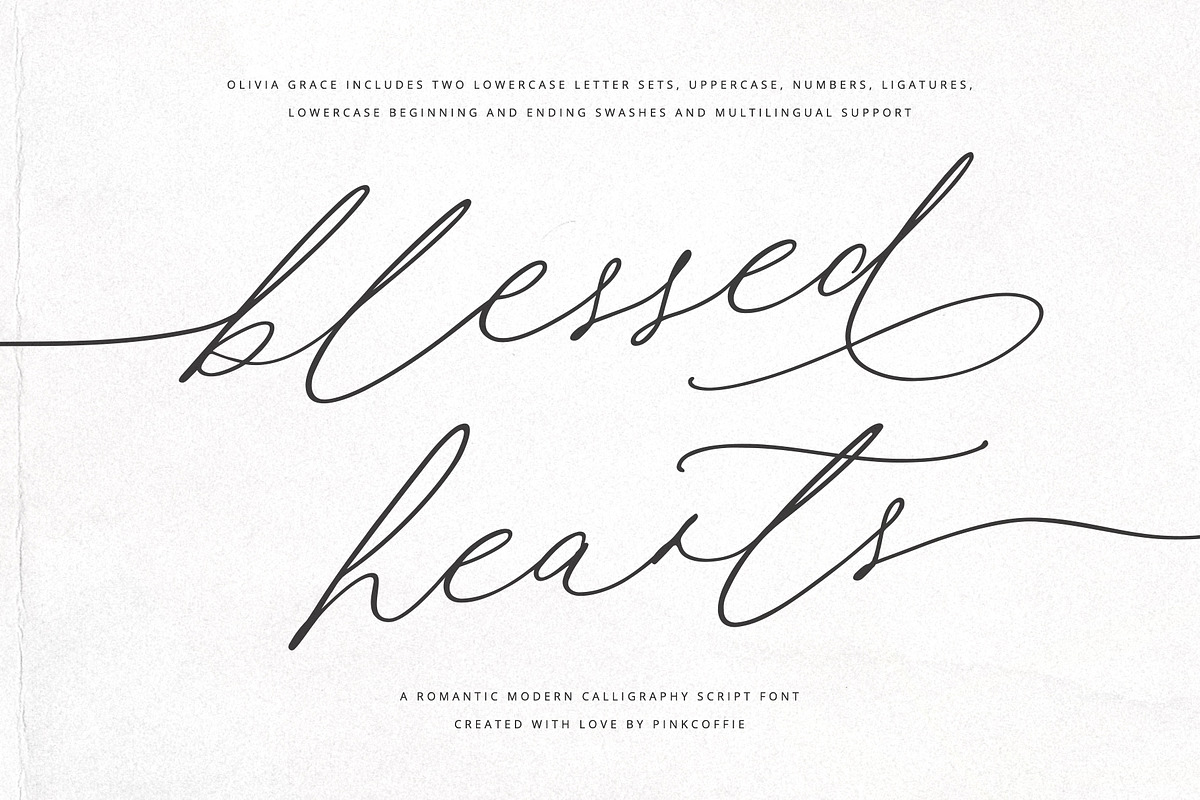 OLIVIA GRACE INCLUDES TWO LOWERCASE LETTER SETS, UPPERCASE, NUMBERS, LIGATURES,
LOWERCASE BEGINNING AND ENDING SWASHES AND MULTILINGUAL SUPPORT
blessed
hearts
A ROMANTIC MODERN CALLIGRAPHY SCRIPT FONT
CREATED WITH LOVE BY PINKCOFFIE